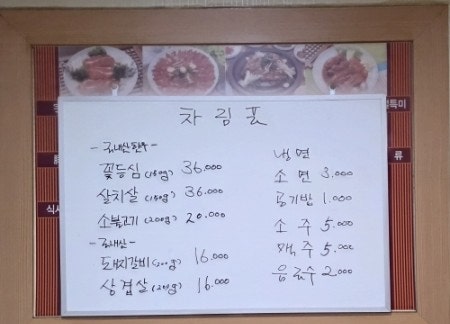 차림표
-국내산한우-
꽃등심(150g) 36.000
살치살(150g) 36.000
소불고기(200g) 20.000
-국내산-
돼지갈비(200g) 16.000
삼겹살(200g) 16.000
냉면
소면 3.000
공기밥 1.000
소주 5.000
맥주 5.000
음료수 2.000
류